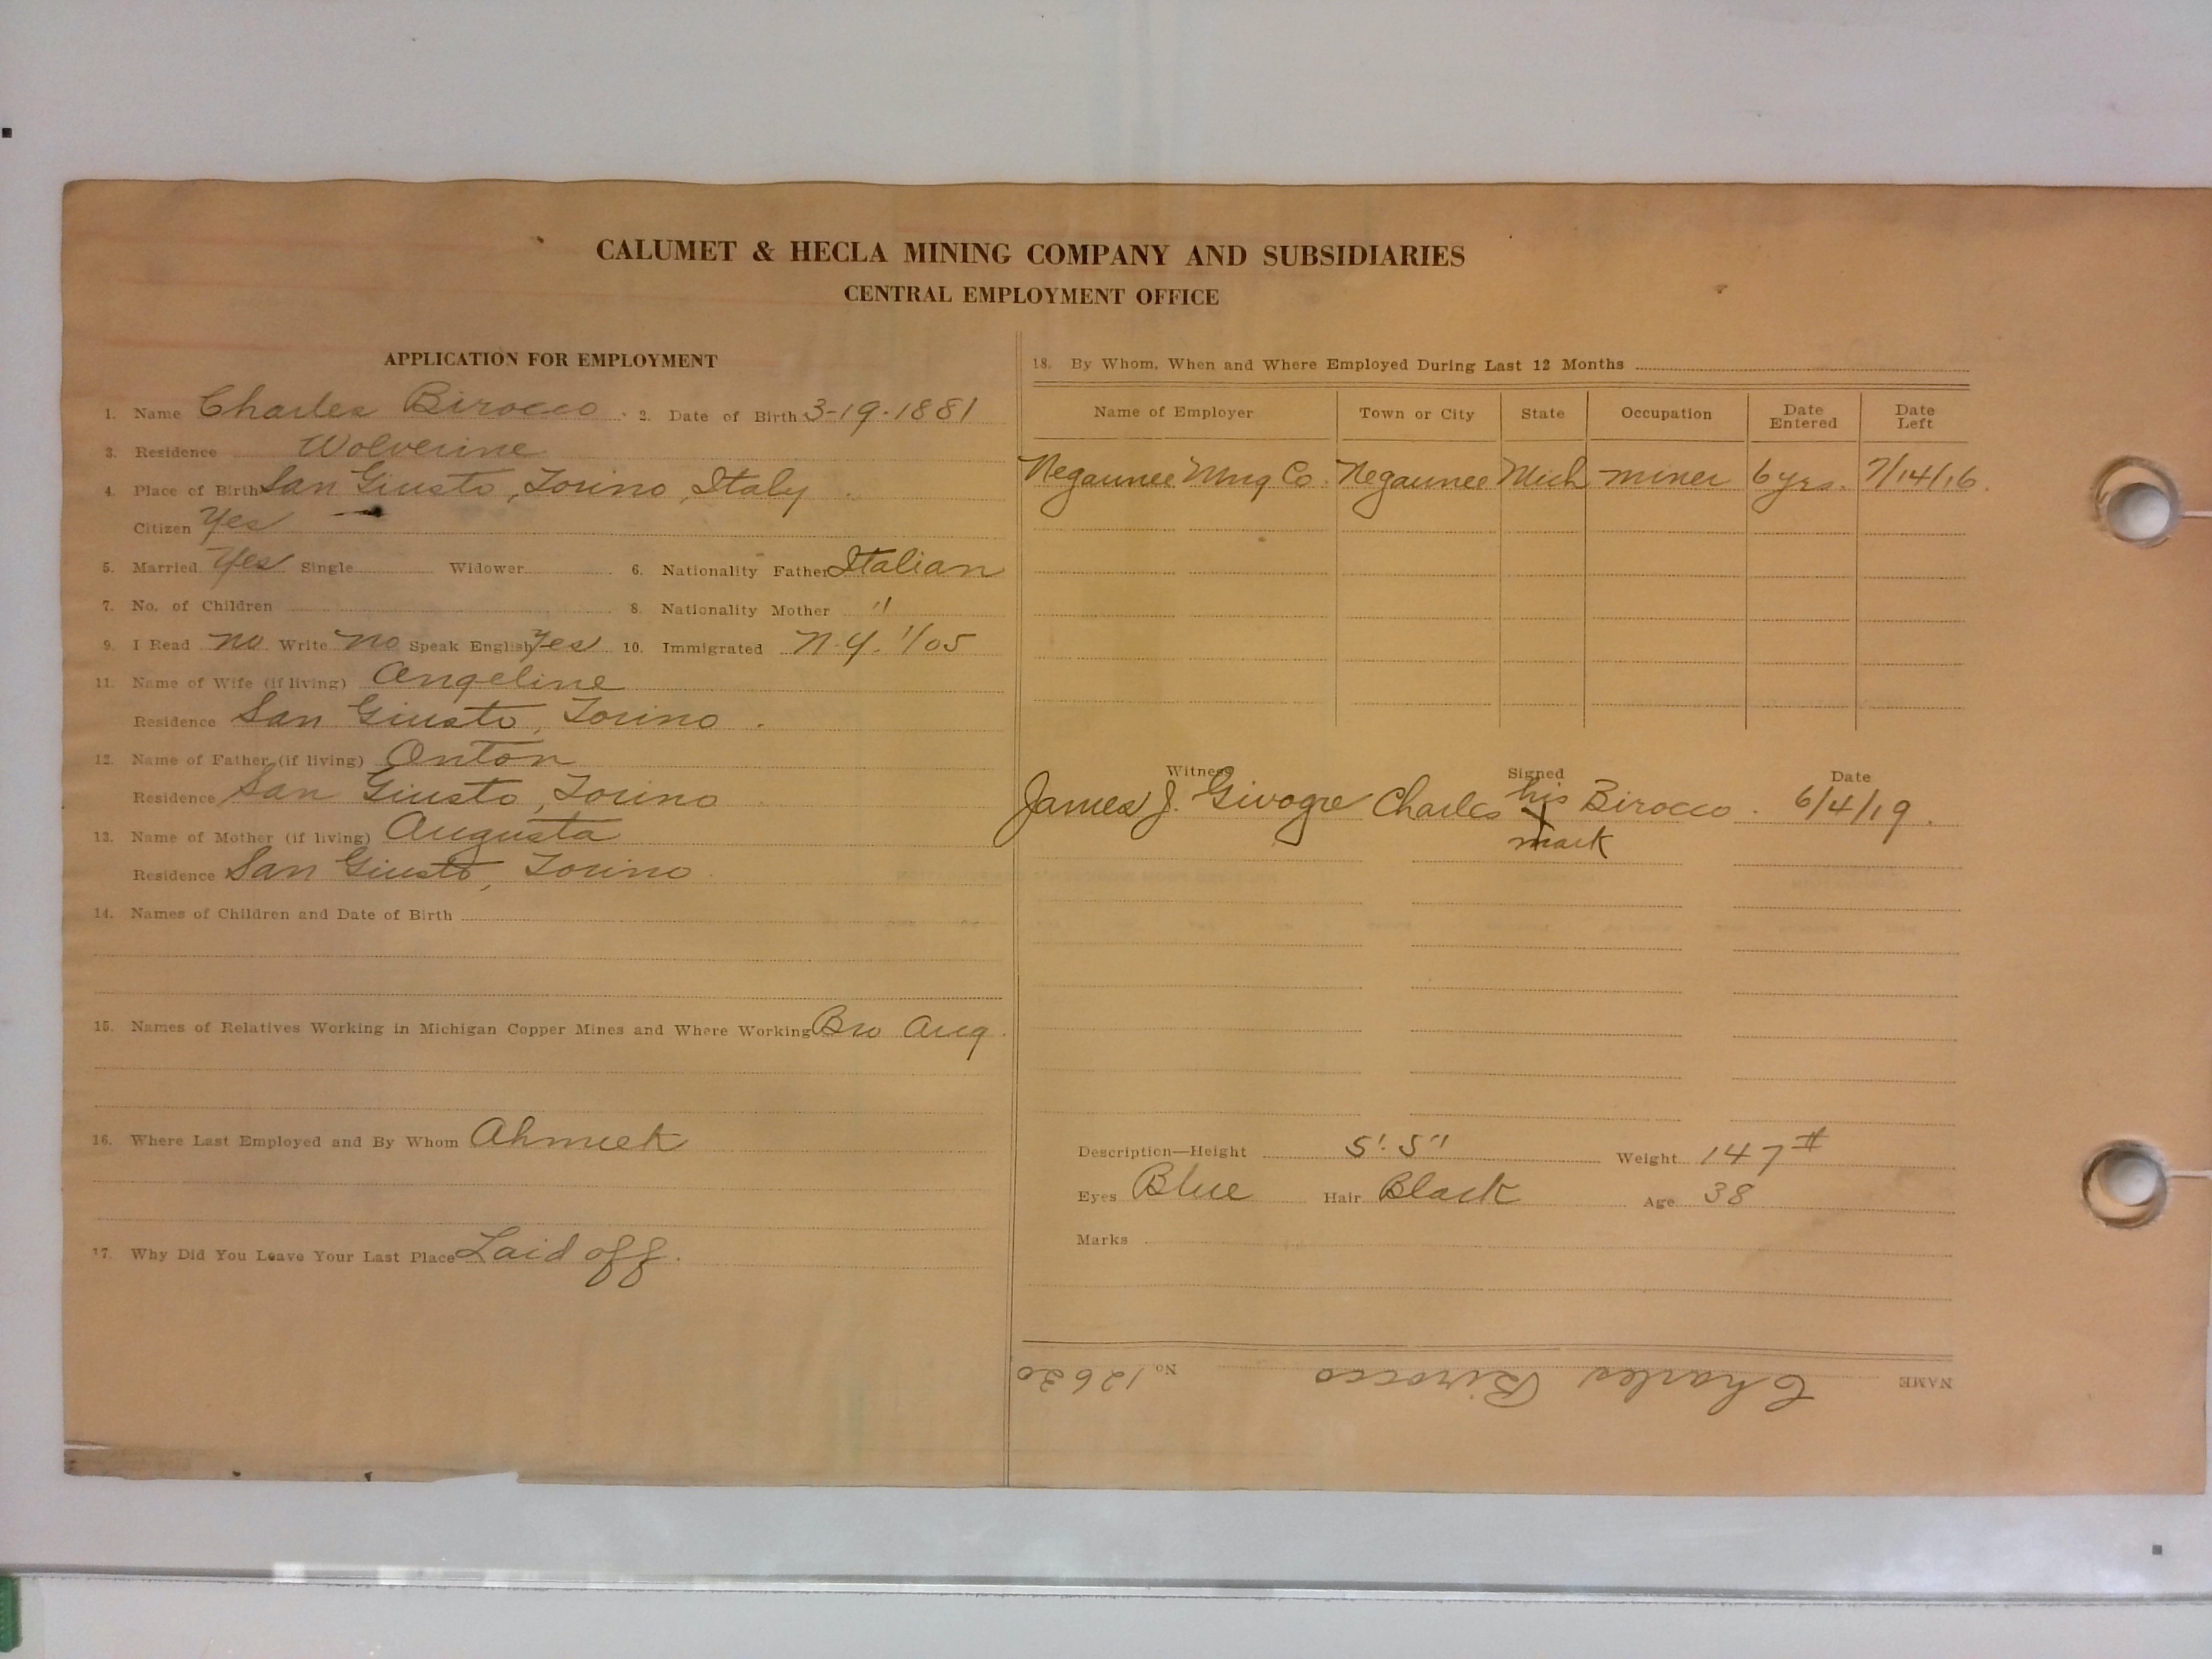 CALUMET & HECLA MINING COMPANY AND SUBSIDIARIES
CENTRAL EMPLOYMENT OFFICE
APPLICATION FOR EMPLOYMENT
1. Name Charles Birocco. 2. Date of Birth 3-19-1881
3. Residence Wolverine
4. Place of Birth San Giusto, Torino, Italy.
Citizen Yes
5. Married Yes Single Widower 6. Nationality Father Italian
7. No. of Children 8. Nationality Mother "
9. I Read no Write no Speak English Yes 10. Immigrated N.Y. 1/05
11. Name of Wife (if living) Angeline
Residence San Giusto, Torino.
12. Name of Father (if living) Anton
Residence San Giusto, Torino
13. Name of Mother (if living) Augusta
Residence San Giusto, Torino
14. Names of Children and Date of Birth
15. Names of Relatives Working in Michigan Copper Mines and Where Working Bro Aug.
16. Where Last Employed and By Whom Ahmeek
17. Why Did You Leave Your Last Place Laid off.
18. By Whom, When and Where Employed During Last 12 Months
Name of Employer Town or City State Occupation Date Entered Date Left
Negaunee Mng Co. Negaunee Mich miner 6 yrs. 7/14/16.
Witness Signed Date
James J. Givogre Charles his X mark Birocco. 6/4/19.
Description—Height 5' 5" Weight 147#
Eyes Blue Hair Black Age 38
Marks
NAME Charles Birocco No 12630